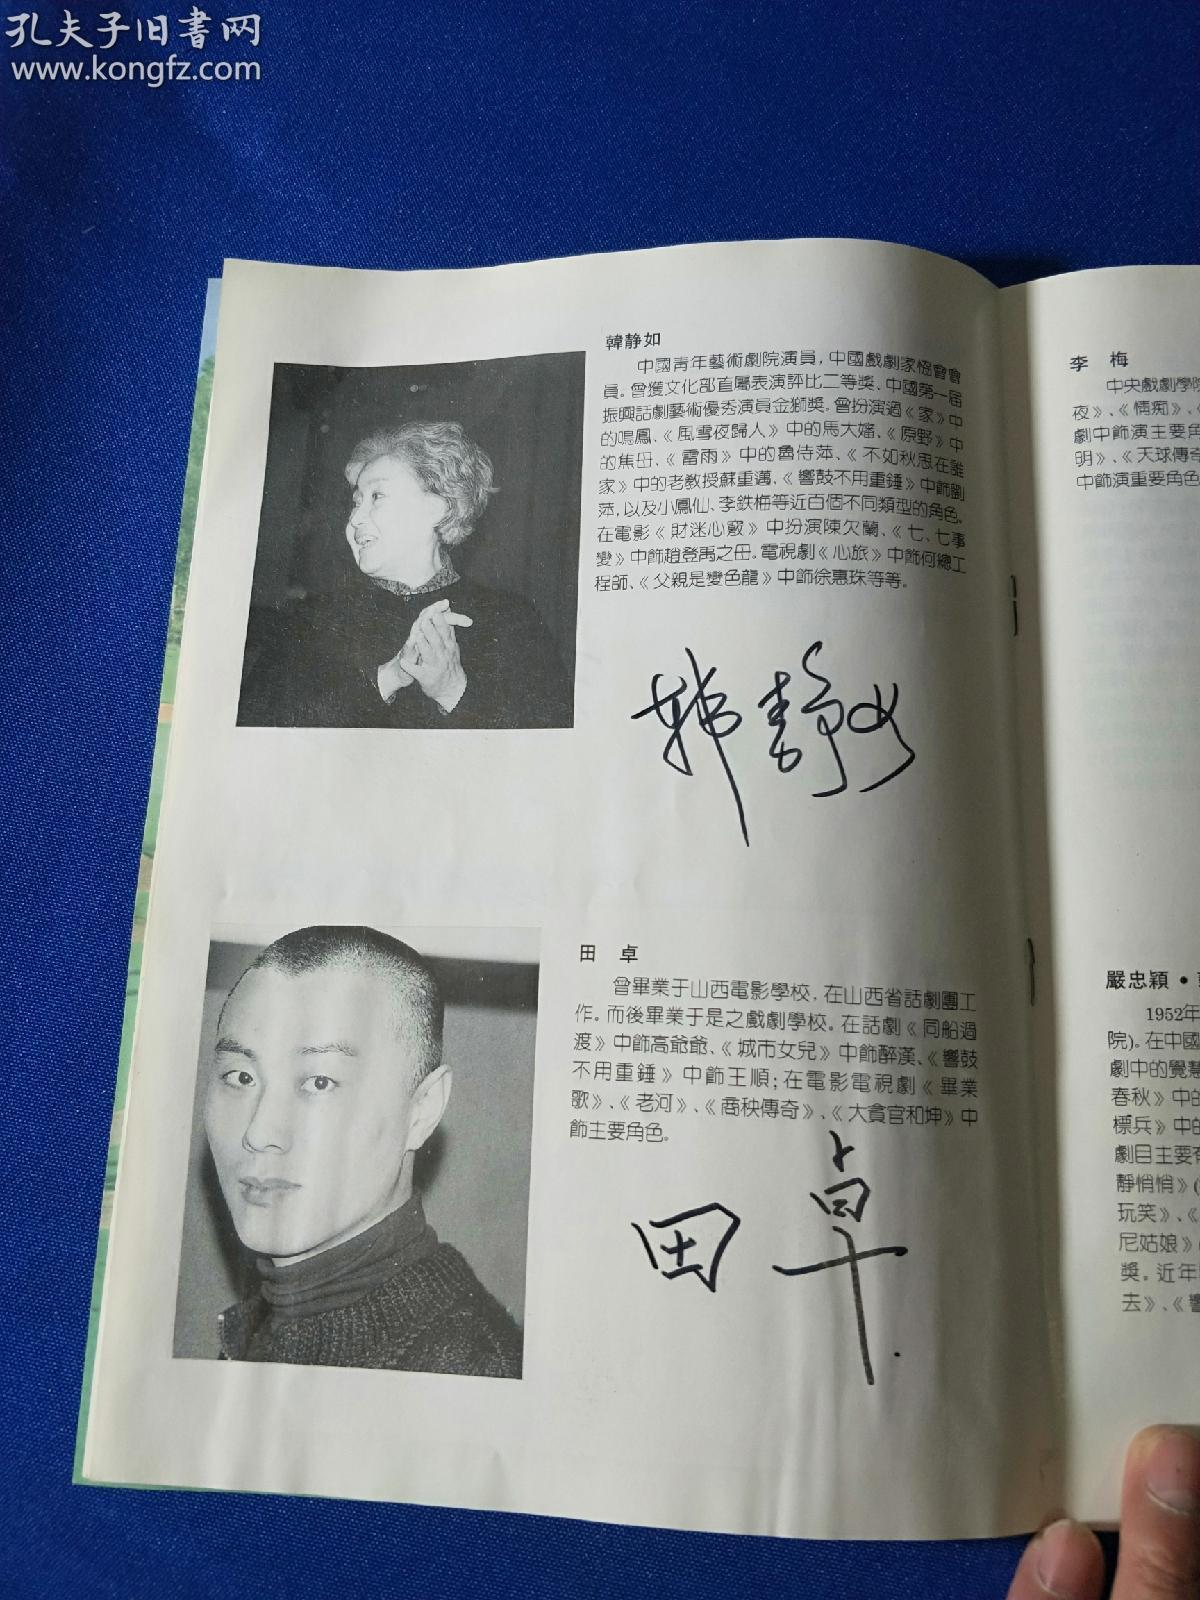 孔夫子旧書网
www.kongfz.com
韓静如
中國青年藝術劇院演員，中國戲劇家協會會
員。曾獲文化部直屬表演評比二等獎、中國第一届
振興話劇藝術優秀演員金獅獎。曾扮演過《家》中
的鳴鳳、《風雪夜歸人》中的馬大嬸、《原野》中
的焦母、《雷雨》中的魯侍萍、《不如秋思在誰
家》中的老教授蘇重邁、《響鼓不用重錘》中飾劉
萍，以及小鳳仙、李鉄梅等近百個不同類型的角色。
在電影《財迷心竅》中扮演陳欠蘭、《七、七事
變》中飾趙登禹之母。電視劇《心旅》中飾何總工
程師、《父親是變色龍》中飾徐惠珠等等。
韩静如
田 卓
曾畢業于山西電影學校，在山西省話劇團工
作。而後畢業于是之戲劇學校。在話劇《同船過
渡》中飾高爺爺、《城市女兒》中飾醉漢、《響鼓
不用重錘》中飾王順；在電影電視劇《畢業
歌》、《老河》、《商秧傳奇》、《大貪官和坤》中
飾主要角色。
田卓
李 梅
中央戲劇學院
夜》、《情痴》、《
劇中飾演主要角
明》、《天球傳奇
中飾演重要角色
嚴忠穎·
1952年
院)。在中國
劇中的覺慧
春秋》中的
標兵》中的
劇目主要有
靜悄悄》(
玩笑》、《
尼姑娘》(
獎。近年
去》、《響